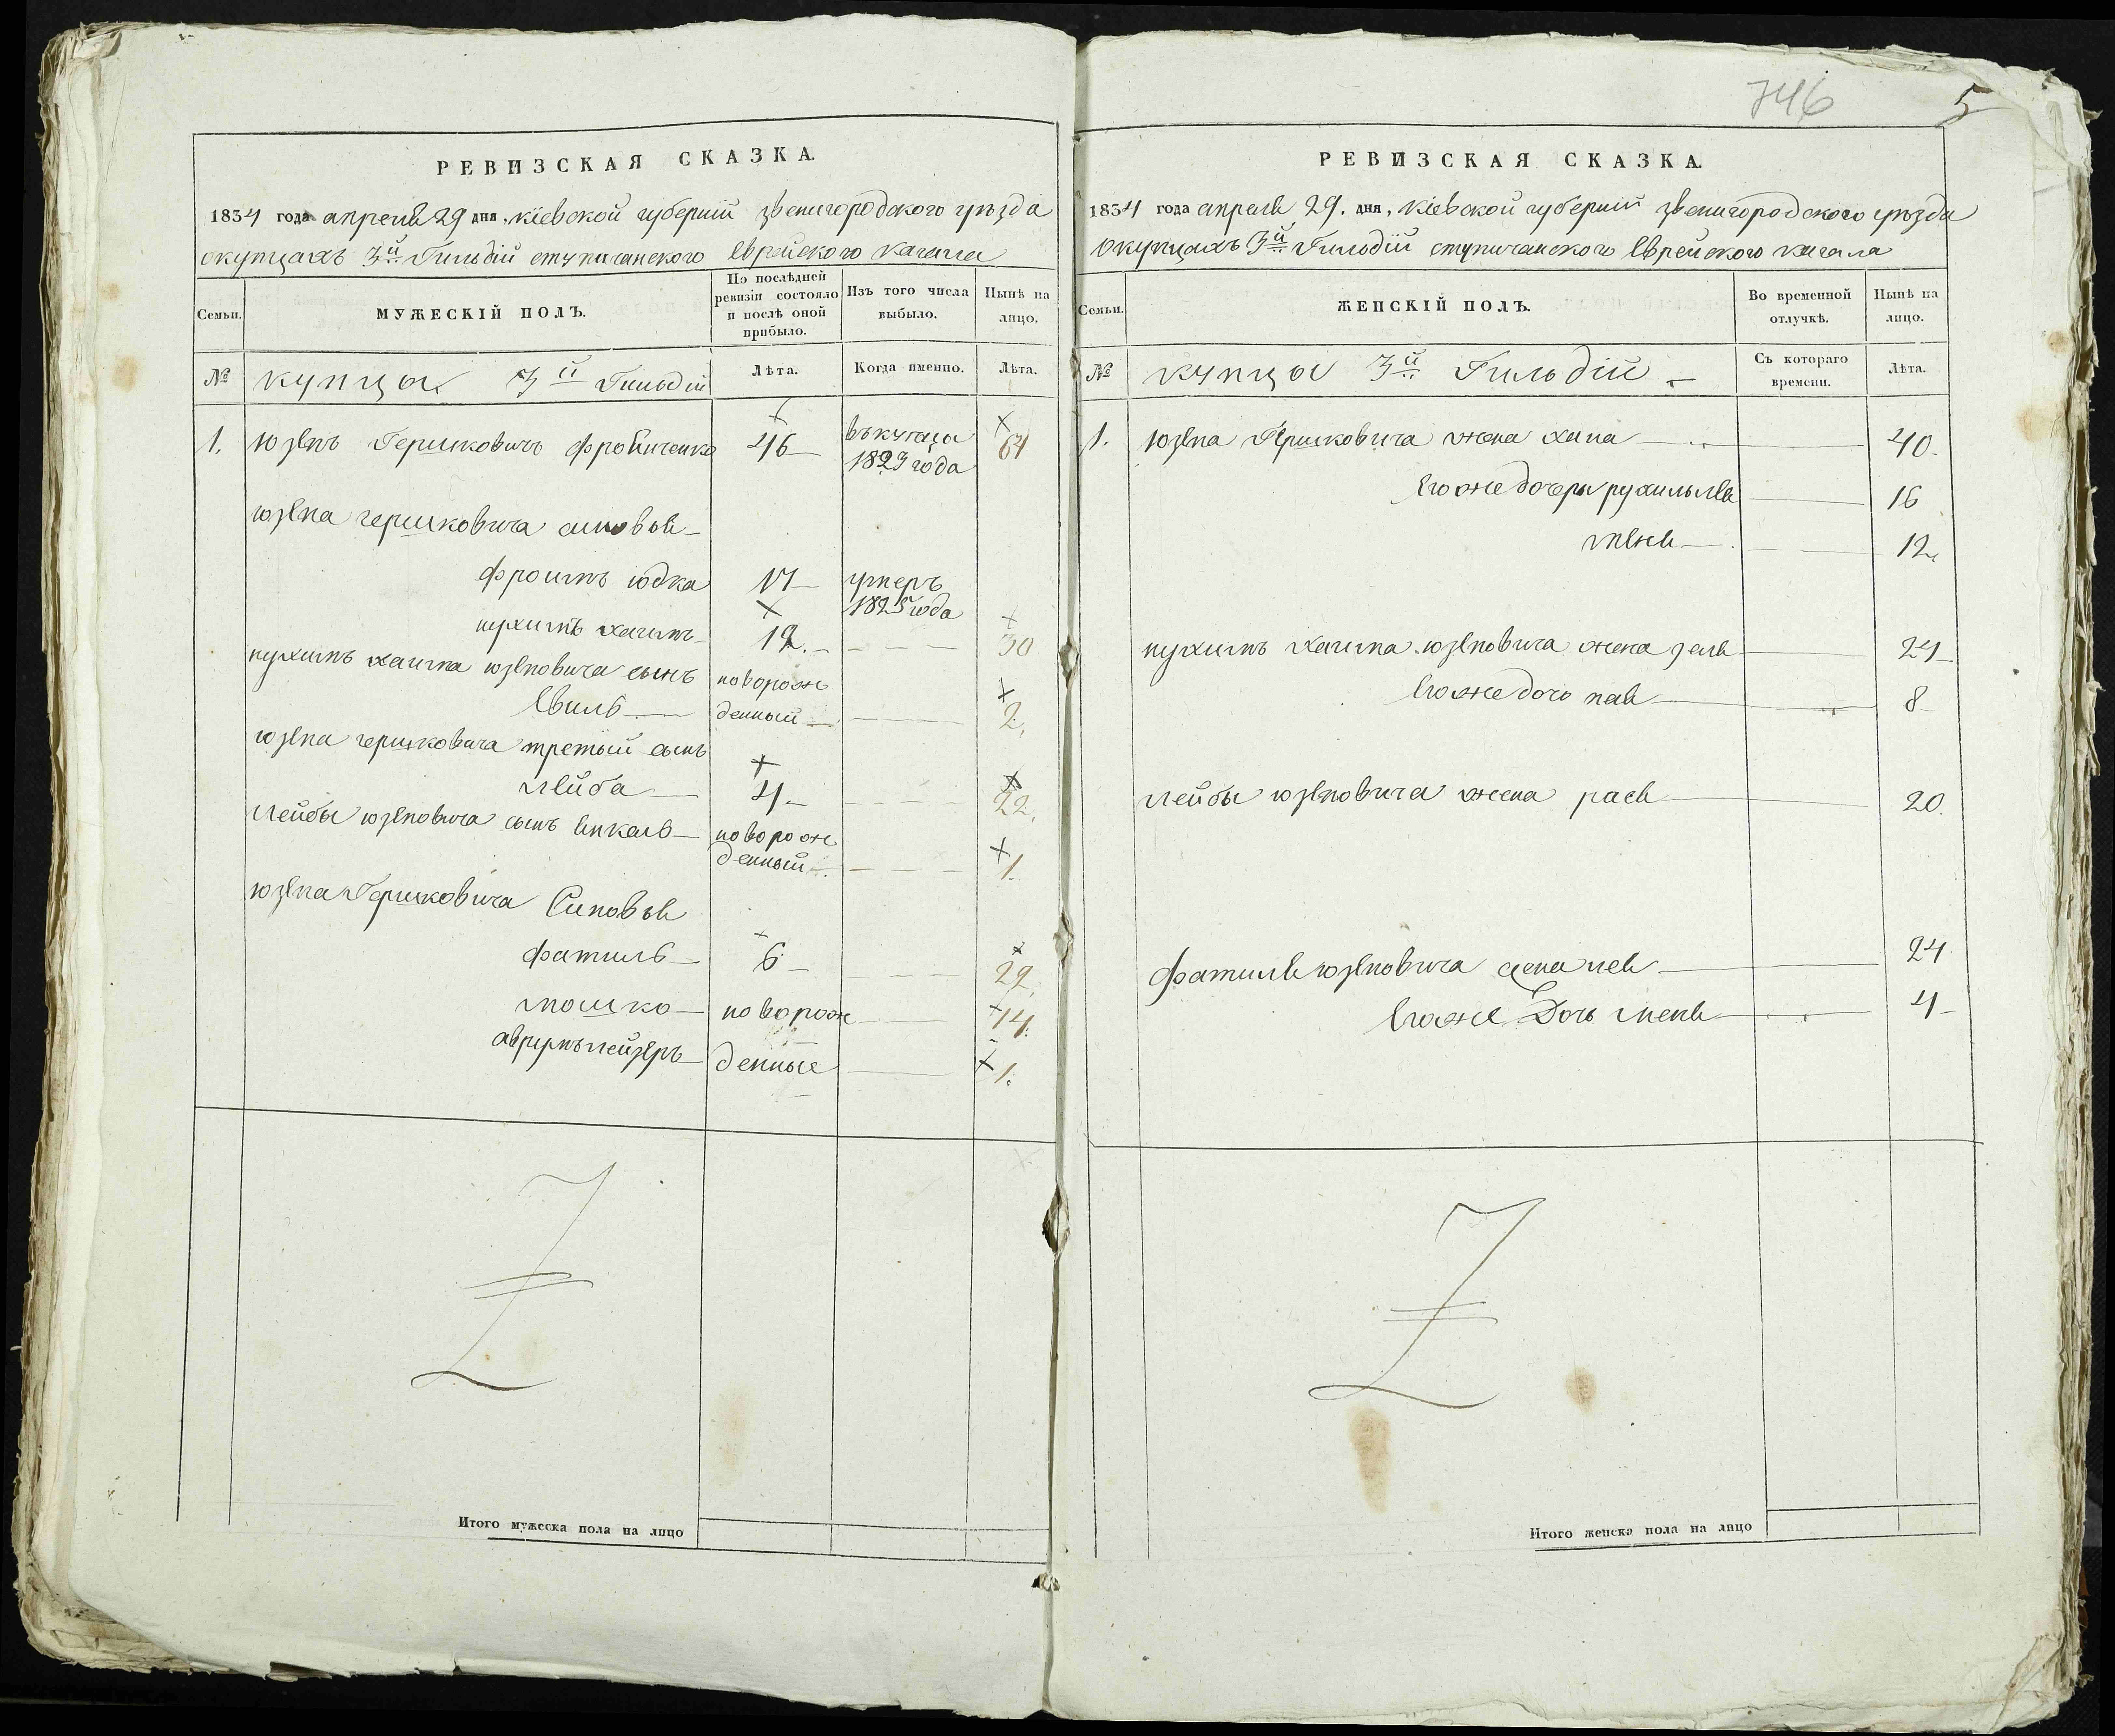 РЕВИЗСКАЯ СКАЗКА.
1834 года апреля 29 дня, кіевской губерніи звенигородского уѣзда
окупцахъ 3й Гильдіи ступичанского Еврейского кагала
Семьи.
МУЖЕСКІЙ ПОЛЪ.
По послѣдней ревизіи состояло и послѣ оной прибыло.
Изъ того числа выбыло.
Нынѣ на лицо.
№
купцы 3й Гильдіи
Лѣта.
Когда именно.
Лѣта.
1. Юзепъ Гершковичъ 46 въкупца 1823 года 64
юзепа гершковича синовья
фроимъ юдка 17 умеръ 1825 года
нухимъ хаимъ 12. 30
нухимъ хаима юзеповича сынъ новорож
Евиль денный 2.
юзепа гершковича третьій сынъ
Лейба 4 22.
Лейбы юзеповича сынъ новорож
денный 1.
юзепа Гершковича Синовья
фатиль 6 22.
мошко новорож 14.
аврумълейзеръ денные 1.
Итого мужеска пола на лицо
746
5
РЕВИЗСКАЯ СКАЗКА.
1834 года апреля 29. дня, кіевской губерніи звенигородского уѣзда
Окупцахъ 3й Гильдіи ступичанского Еврейского кагала
Семьи.
ЖЕНСКІЙ ПОЛЪ.
Во временной отлучкѣ.
Нынѣ на лицо.
№
купцы 3й Гильдіи
Съ котораго времени.
Лѣта.
1. Юзепа Гершковича жена хана 40.
Егоже дочеры рухильля 16
меня 12.
нухимъ хаима юзеповича жена зеля 24
Егоже дочь пая 8
Лейбы юзеповича жена рася 20.
Фатиля юзеповича 24
Егоже Дочь меня 4
Итого женска пола на лицо